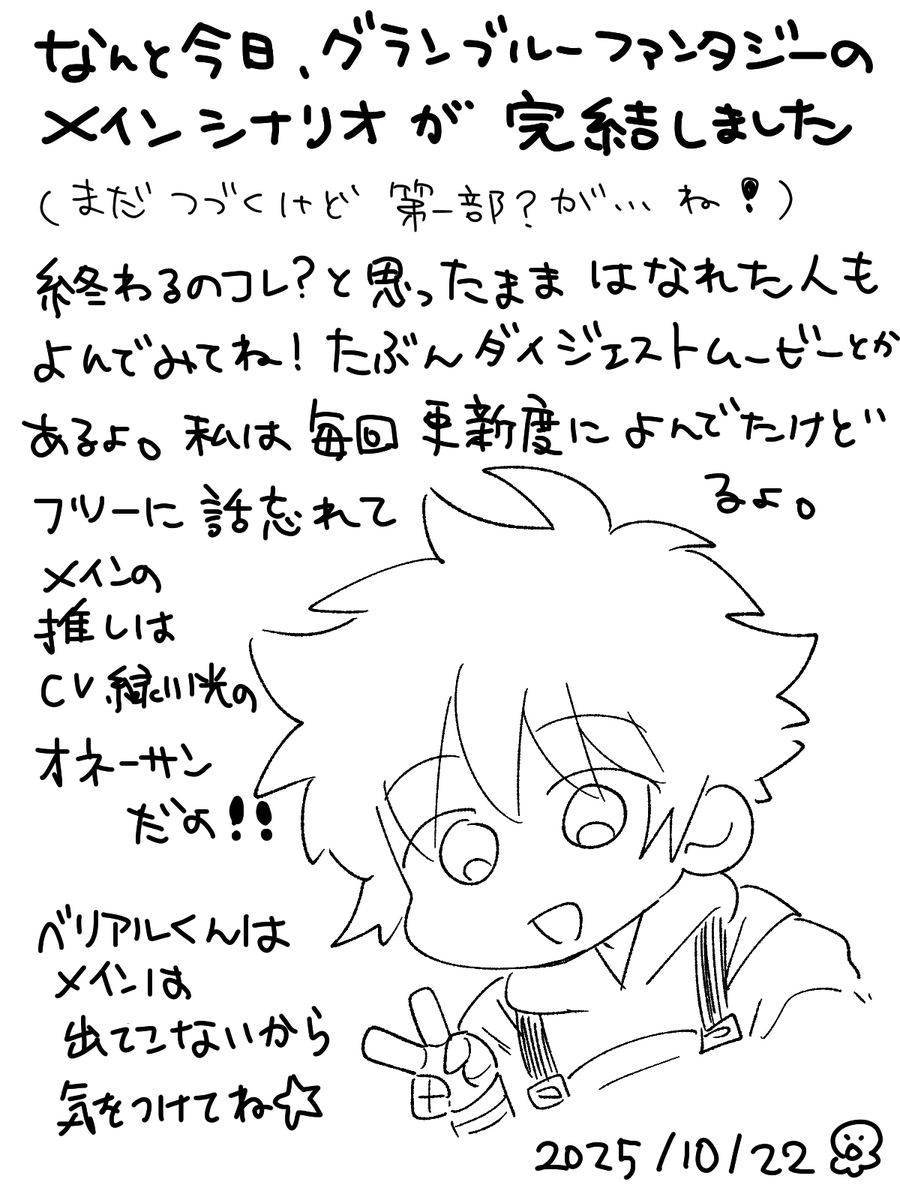 なんと今日、グランブルーファンタジーの
メインシナリオが完結しました
（まだつづくけど第一部？が…ね！）
終わるのコレ？と思ったままはなれた人も
よんでみてね！たぶんダイジェストムービーとか
あるよ。私は毎回更新度によんでたけど
フツーに話忘れてるよ。
メインの
推しは
CV緑川光の
オネーサン
だよ！！
ベリアルくんは
メインは
出てこないから
気をつけてね☆
2025/10/22